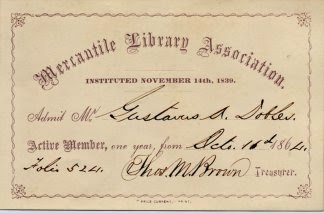 Mercantile Library Association.
INSTITUTED NOVEMBER 14th, 1839.
Admit Mr Gustavus A. Dobles
Active Member, one year, from Oct. 16th 1864.
Folio 524. Thos. M. Brown Treasurer.
PRICE CURRENT PRINT.